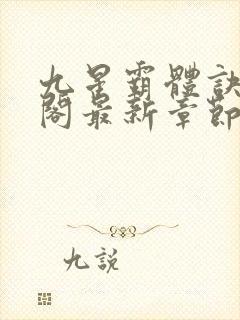 九星霸體訣
閣最新章節
九說